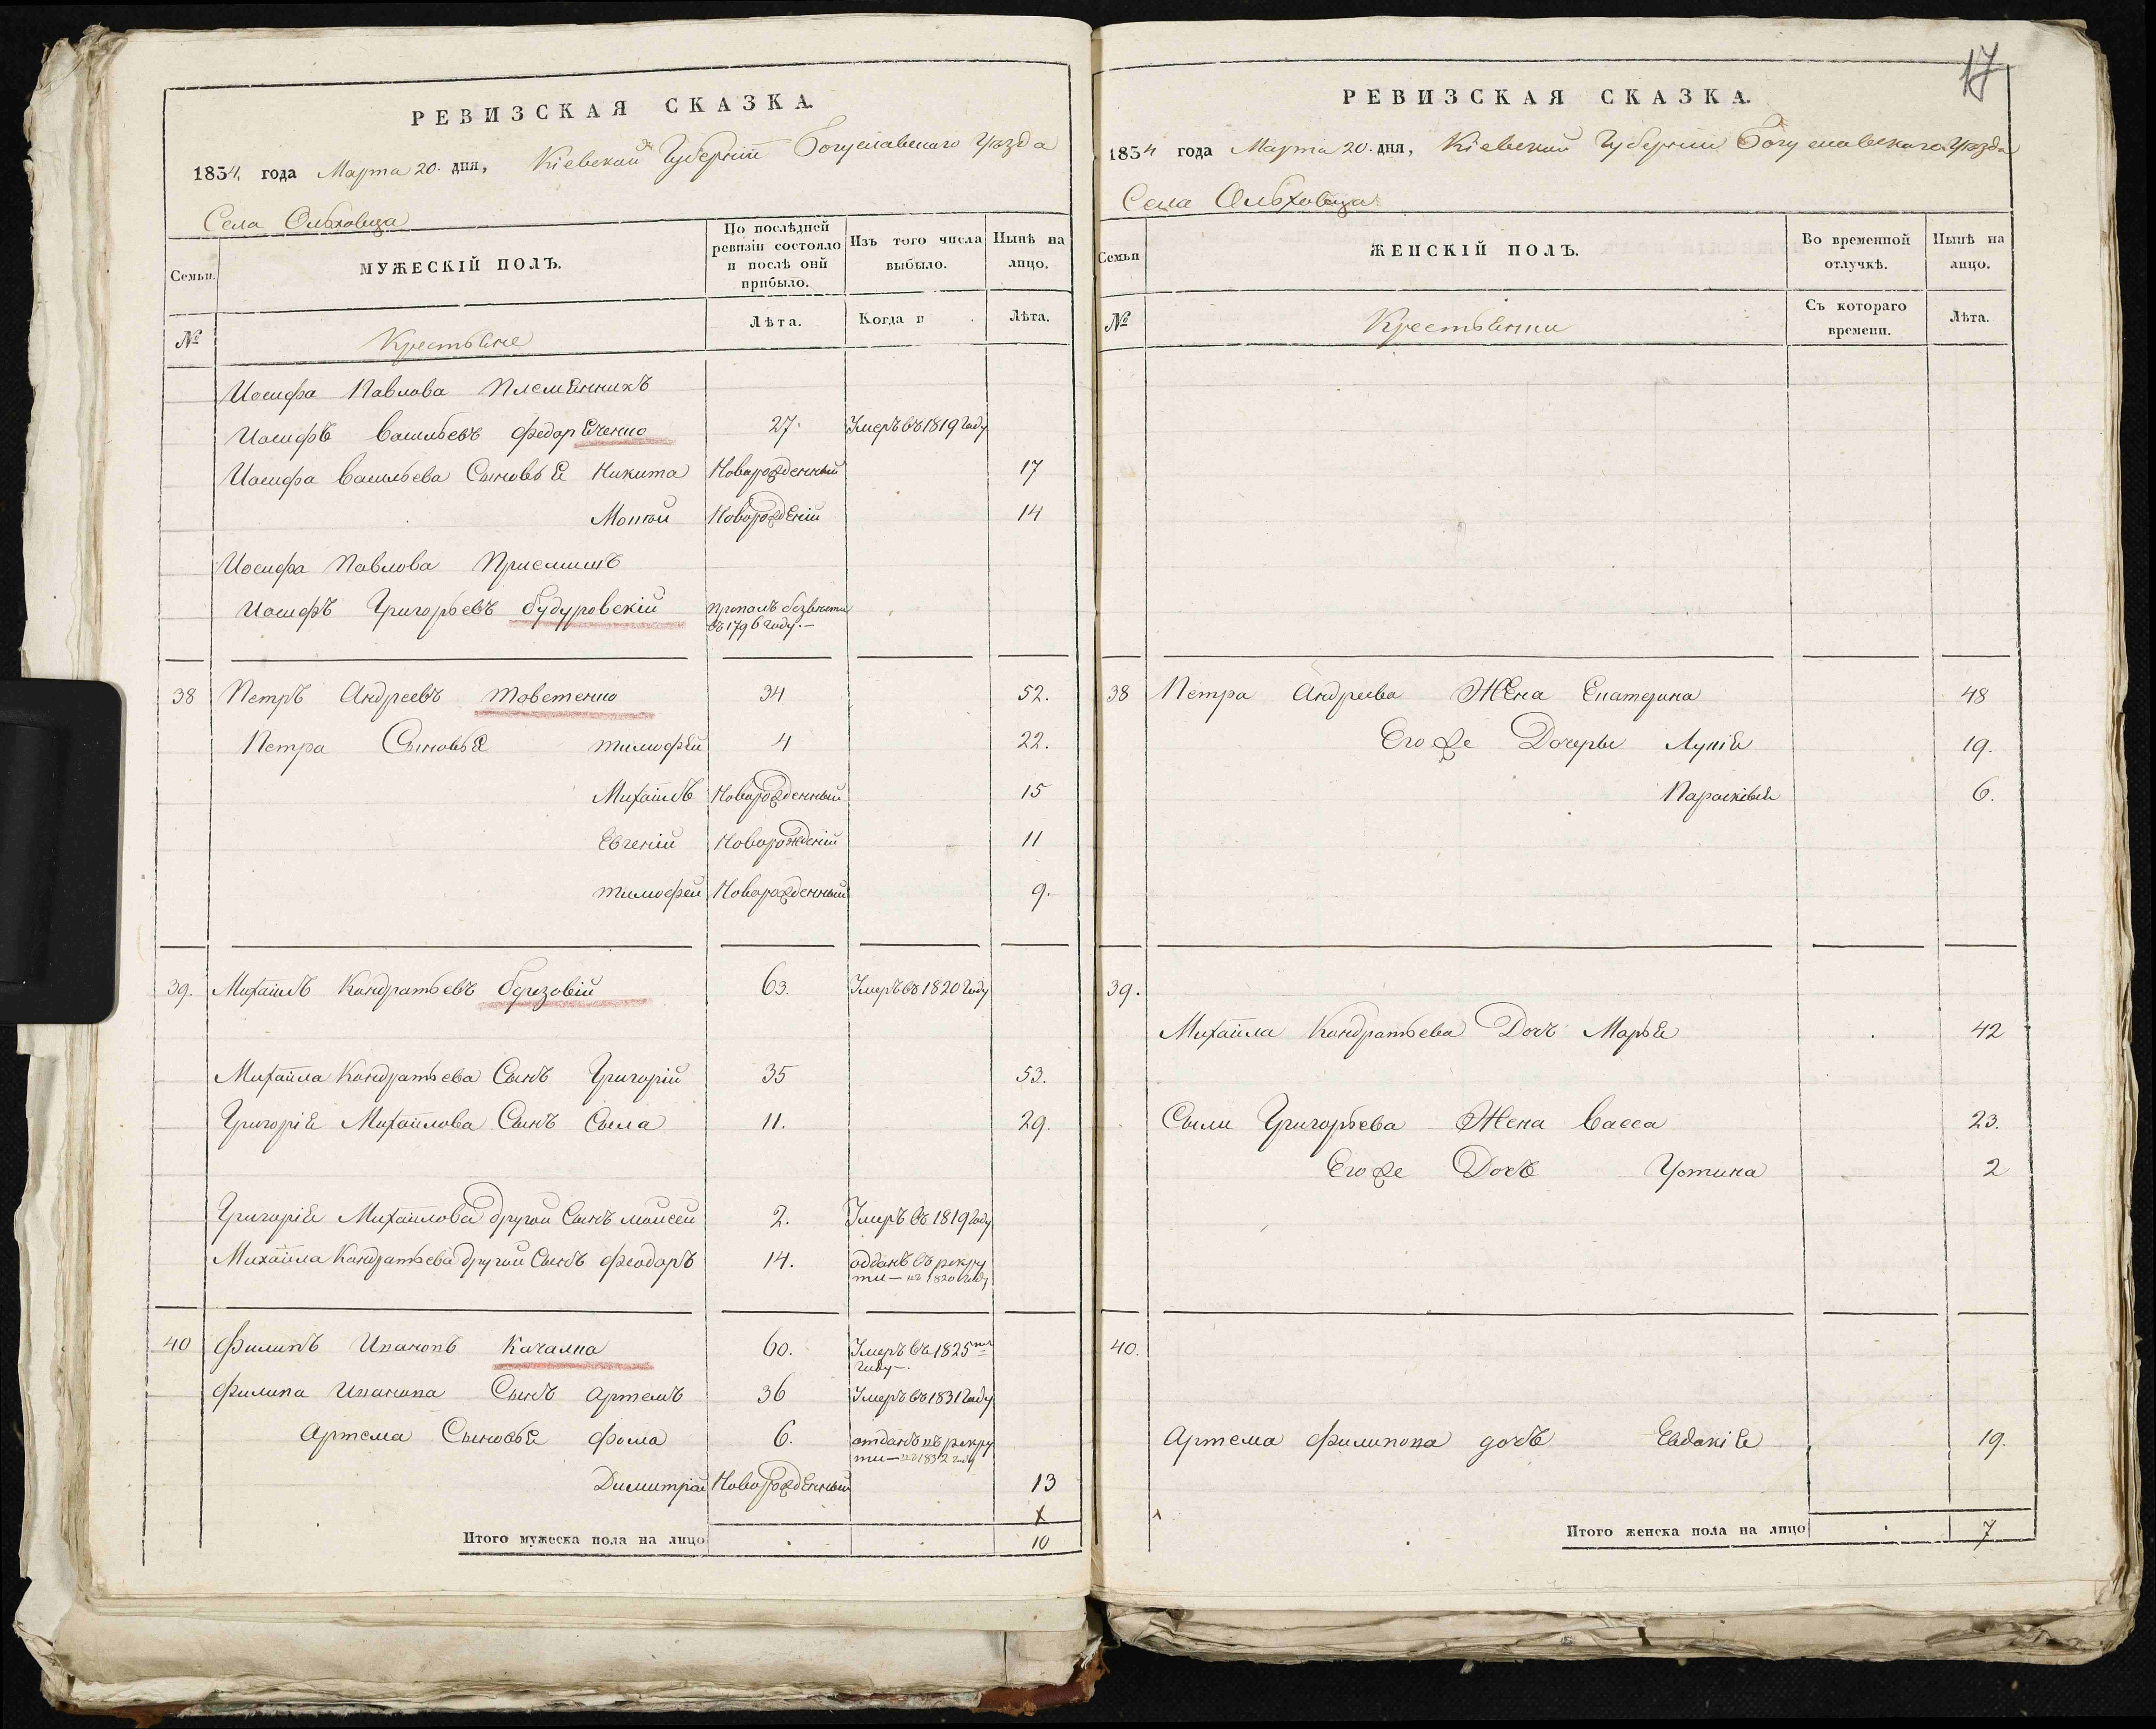 РЕВИЗСКАЯ СКАЗКА.
1834 года Марта 20. дня, Кіевской Губерніи Богуславского Уѣзда
Села Ольховца
Семьи.
МУЖЕСКІЙ ПОЛЪ.
По послѣдней ревизіи состояло и послѣ оной прибыло.
Изъ того числа выбыло.
Нынѣ на лицо.
№
Крестьяне
Лѣта.
Когда и
Лѣта.
Иосифа Павлова Племянникъ
Иосифъ Васильевъ Федорченко 27. Умеръ въ 1819 Году
Иосифа Васильева Сыновья Никита Новорожденный 17
Мойсей Новорожденій 14
Иосифа Павлова Приемишъ
Иосифъ Григорьевъ Будуровскій пропалъ безвести въ 1796 Году.—
38 Петръ Андреевъ Товстенко 34 52.
Петра Сыновья Тимофей 4 22.
Михайлъ Новорожденный 15
Евгеній Новорожденій 11
Тимофей Новорожденный 9.
39. Михайлъ Кондратьевъ Березовій 63. Умеръ въ 1820 Году
Михайла Кондратьева Сынъ Григорій 35 53.
Григорія Михайлова Сынъ Сыла 11. 29.
Григорія Михайлова другой Сынъ Мойсей 2. Умеръ въ 1819 Году
Михайла Кондратьева другой Сынъ Феодоръ 14. оддань въ рекру
ти — въ 1820 Году
40 Филипъ Ивановъ Качалка 60. Умеръ въ 1825 Году —.
Филипа Иванова Сынъ Артемъ 36 Умеръ въ 1831 Году
Артема Сыновья Фома 6. отданъ въ рекру
ти — въ 1832 Году
Димитрій Новорожденный 13
Итого мужеска пола на лицо 10
17
РЕВИЗСКАЯ СКАЗКА.
1834 года Марта 20. дня, Кіевской Губерніи Богуславского Уѣзда
Села Ольховца
Семьи
ЖЕНСКІЙ ПОЛЪ.
Во временной отлучкѣ.
Нынѣ на лицо.
№
Крестьянки
Съ котораго времени.
Лѣта.
38 Петра Андреева Жена Екатерина 48
Его же Дочеры Лукія 19.
Парасківія 6.
39.
Михайла Кондратьева Дочъ Марья 42
Сылы Григорьева Жена Васса 23.
Его же Дочъ Устина 2
40.
Артема Филипова дочъ Евдокія 19.
Итого женска пола на лицо 7